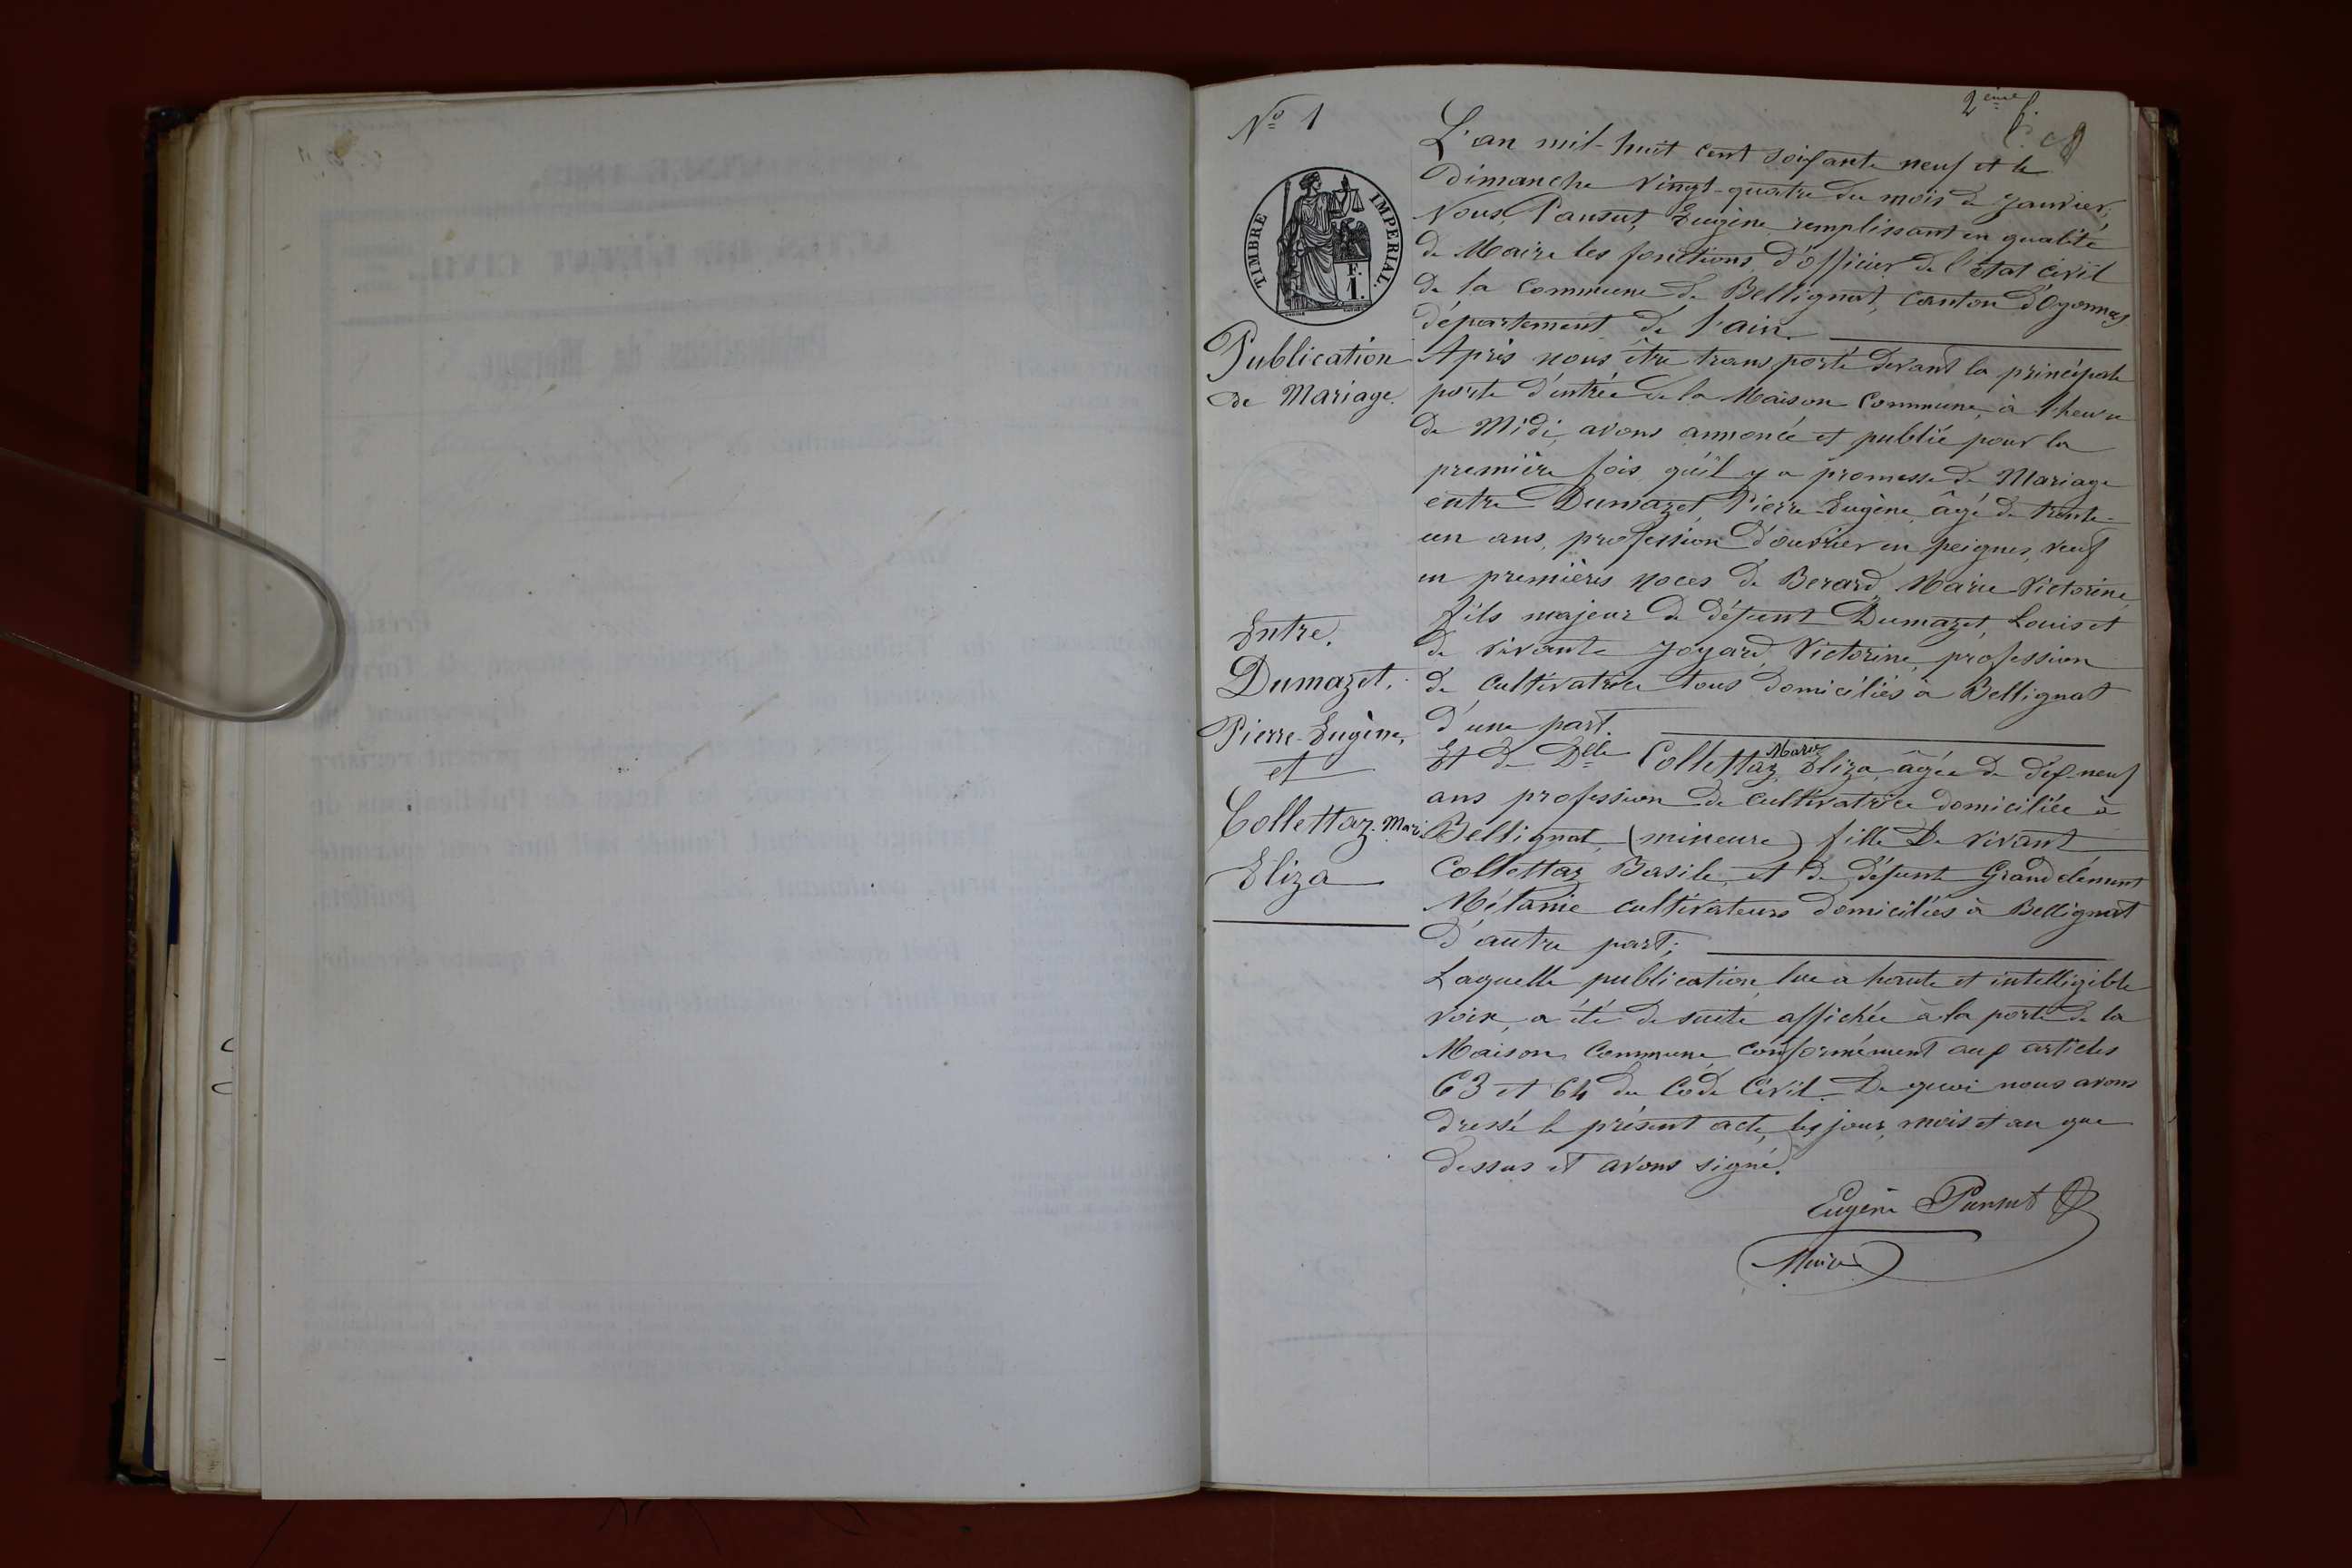 2ème f.
Nº 1
TIMBRE IMPERIAL.
F.
1.
Publication
de Mariage.
Entre,
Dumazet,
Pierre-Eugène,
et
Collettaz. Marie
Eliza
L'an mil-huit cent soixante neuf et le
Dimanche vingt-quatre du mois de Janvier;
Nous, Pansut, Eugène, remplissant en qualité
de Maire les fonctions d'officier de l'état civil
de la Commune de Bellignat, Canton d'Oyonnax
département de l'ain.
Après nous être transporté devant la principale
porte d'entrée de la Maison Commune, à l'heure
de Midi, avons annoncé et publié pour la
première fois qu'il y a promesse de Mariage
entre Dumazet, Pierre-Eugène, âgé de trente-
un ans, profession d'ouvrier en peignes, veuf
en premières noces de Berard, Marie-Victorine,
fils majeur de défunt Dumazet, Louis et
de vivante Joyard, Victorine, profession
de cultivatrice tous domiciliés à Bellignat
d'une part.
Et de Dlle Collettaz, Marie Eliza, âgée de dix-neuf
ans profession de cultivatrice domiciliée à
Bellignat, (mineure) fille De vivant
Collettaz Basile, et de défunte Grandclément
Mélanie cultivateurs domiciliés à Bellignat
d'autre part;
Laquelle publication, lue à haute et intelligible
voix, a été de suite affichée à la porte de la
Maison Commune, conformément aux articles
63 et 64 du Code Civil. De quoi nous avons
dressé le présent acte, les jour, mois et an que
dessus et avons signé.
Eugène Pansut
Maire